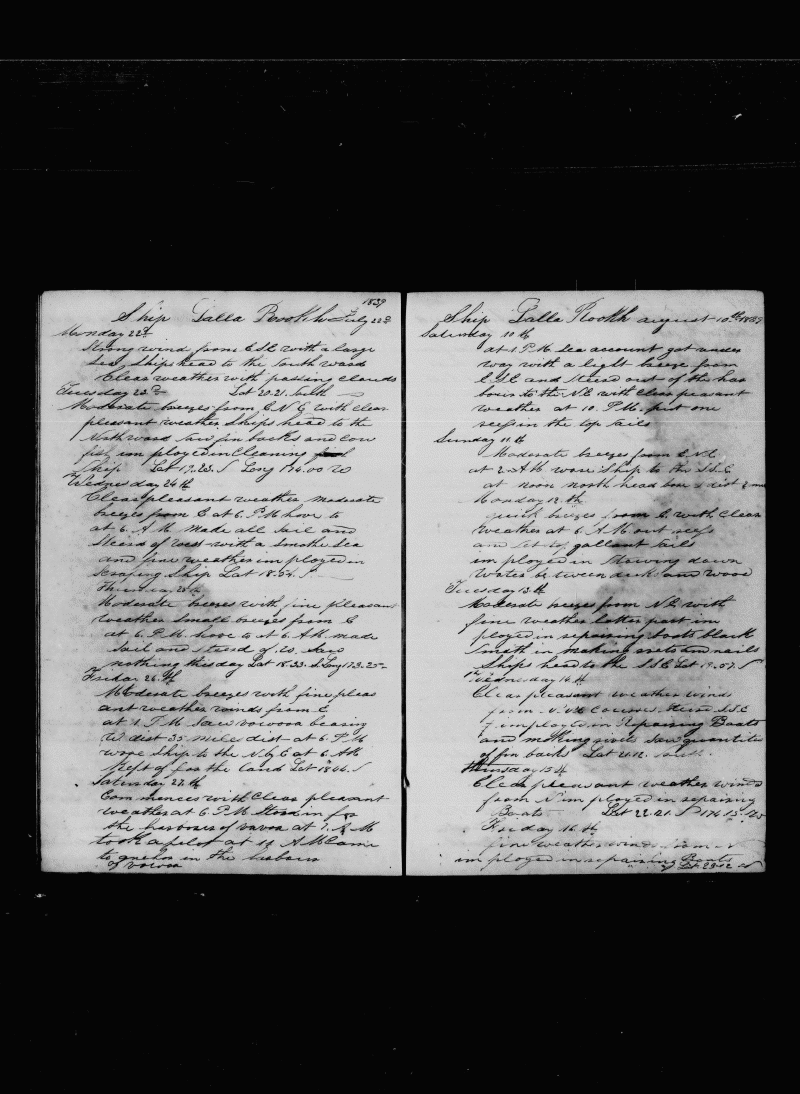 1839
Ship Lalla Rookh July 22d
Monday 22d
Strong wind from ESE with a large
Sea Ships head to the South ward
Clear weather with passing clouds
Tuesday 23d Lat 20.21 South
Moderate breezes from ENE with clear
pleasant weather Ships head to the
Northward Saw fin backs and cow
fish imployed in Cleaning
Ship Lat 19.23. S Long 174.00
Wednesday 24th
Clear pleasant weather moderate
breezes from E at 6. PM hove to
at 6 AM made all Sail and
Steard of west with a Smothe Sea
and fine weather imployed in
Scraping Ship Lat 18.54. S
Thursday 25th
Moderate breezes with fine pleasant
weather Small breezes from E
at 6. PM. hove to at 6 AM made
Sail and steard of . Saw
nothing this day Lat 18.33. S Long 173.25
Friday 26.th
Moderate breezes with fine pleas
ant weather winds from E
at 1. PM Saw vovoou bearing
W dist 35 mile dist at 6. PM
wore Ship to the N.b.E at 6 AM
Kept of for the land Lat 18 46. S
Saturday 27.th
Commences with Clear pleasant
weather at 6 PM Stood in for
the harbour of vavoa at 7. AM
took a pilot at 10 AM Came
to anchor in the harbour
of vovoa
Ship Lalla Rookh august 10th 1839
Saturday 10th
at 1. PM Sea account got under
way with a light breeze from
ESE and Steard out of the har
bour to the NE with clear pleasant
weather at 10. PM. put one
reef in the top Sails
Sunday 11th
Moderate breezes from ENE
at 2. AM wore Ship to the SSE
at noon north head bore dist
Monday 12.th
quick breezes from E with Clear
weather at 6 AM out reefs
and set top gallant Sails
imployed in Stowing down
Water between decks and wood
Tuesday 13.th
Moderate breezes from NE with
fine weather latter part im
ployed in repairing boats black
Smith in making and nails
Ships head to the SSE Lat 19.57. S
Wednesday 14th
Clear pleasant weather winds
from Courses Steard SSE
imployed in Repairing Boats
and making Saw quantities
of fin backs Lat 21.12. South.
Thursday 15th
Clear pleasant weather winds
from N imployed in repairing
Boats Lat 22.21. S 174.15.
Friday 16.th
fine weather winds from
imployed in repairing Boats
Lat 23.12